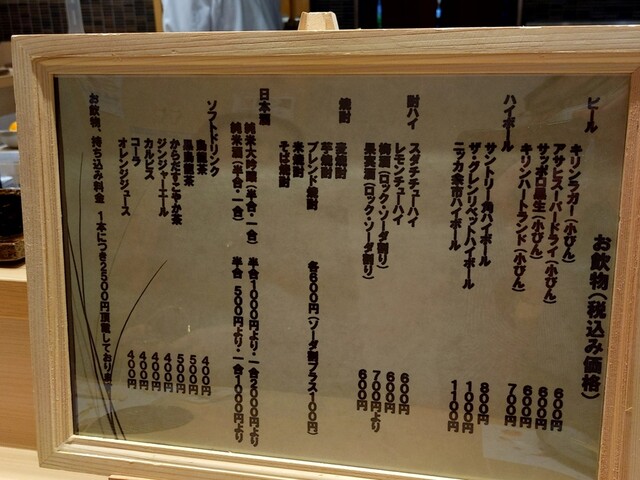 お飲物(税込み価格)
ビール
キリンラガー(小びん) 600円
アサヒスーパードライ(小びん) 600円
サッポロ黒生(小びん) 600円
キリンハートランド(小びん) 700円
ハイボール
サントリー角ハイボール 800円
ザ・グレンリベットハイボール 1000円
ニッカ余市ハイボール 1100円
酎ハイ
スダチチューハイ 600円
レモンチューハイ 600円
梅酒(ロック・ソーダ割り) 700円より
果実酒(ロック・ソーダ割り) 600円
焼酎
麦焼酎
芋焼酎
ブレンド焼酎 各600円(ソーダ割プラス100円)
米焼酎
そば焼酎
日本酒
純米大吟醸(半合・一合) 半合1000円より・一合2000円より
純米酒(半合・一合) 半合 500円より・一合1000円より
ソフトドリンク
烏龍茶 400円
黒烏龍茶 500円
からだすこやか茶 500円
ジンジャーエール 400円
カルピス 400円
コーラ 400円
オレンジジュース 400円
お飲物、持ち込み料金 1本につき2500円頂戴しており